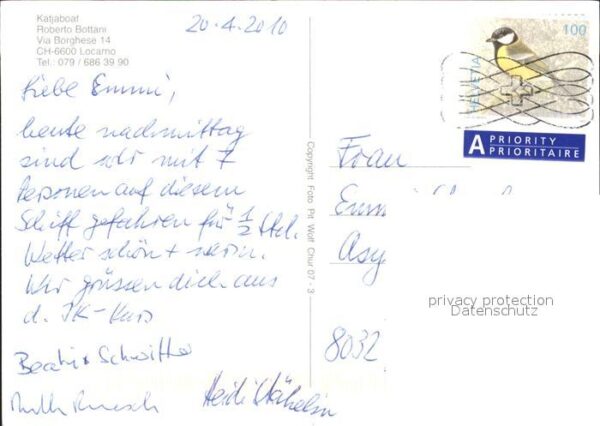 Katjaboat
Roberto Bottani
Via Borghese 14
CH-6600 Locarno
Tel.: 079 / 686 39 90
20.4.2010
Liebe Emmi,
heute nachmittag
sind wir mit 7
Personen auf diesem
Schiff gefahren für 1/2 Std.
Wetter schön + warm.
Wir grüssen dich aus
d. IK-Kurs
Beatrix Schwitter
Ruth
Heidi Stähelin
Copyright Foto Pit Wolf Chur 07 - 3
100
HELVETIA
A PRIORITY
PRIORITAIRE
Frau
Emm
Asy
8032
privacy protection
Datenschutz